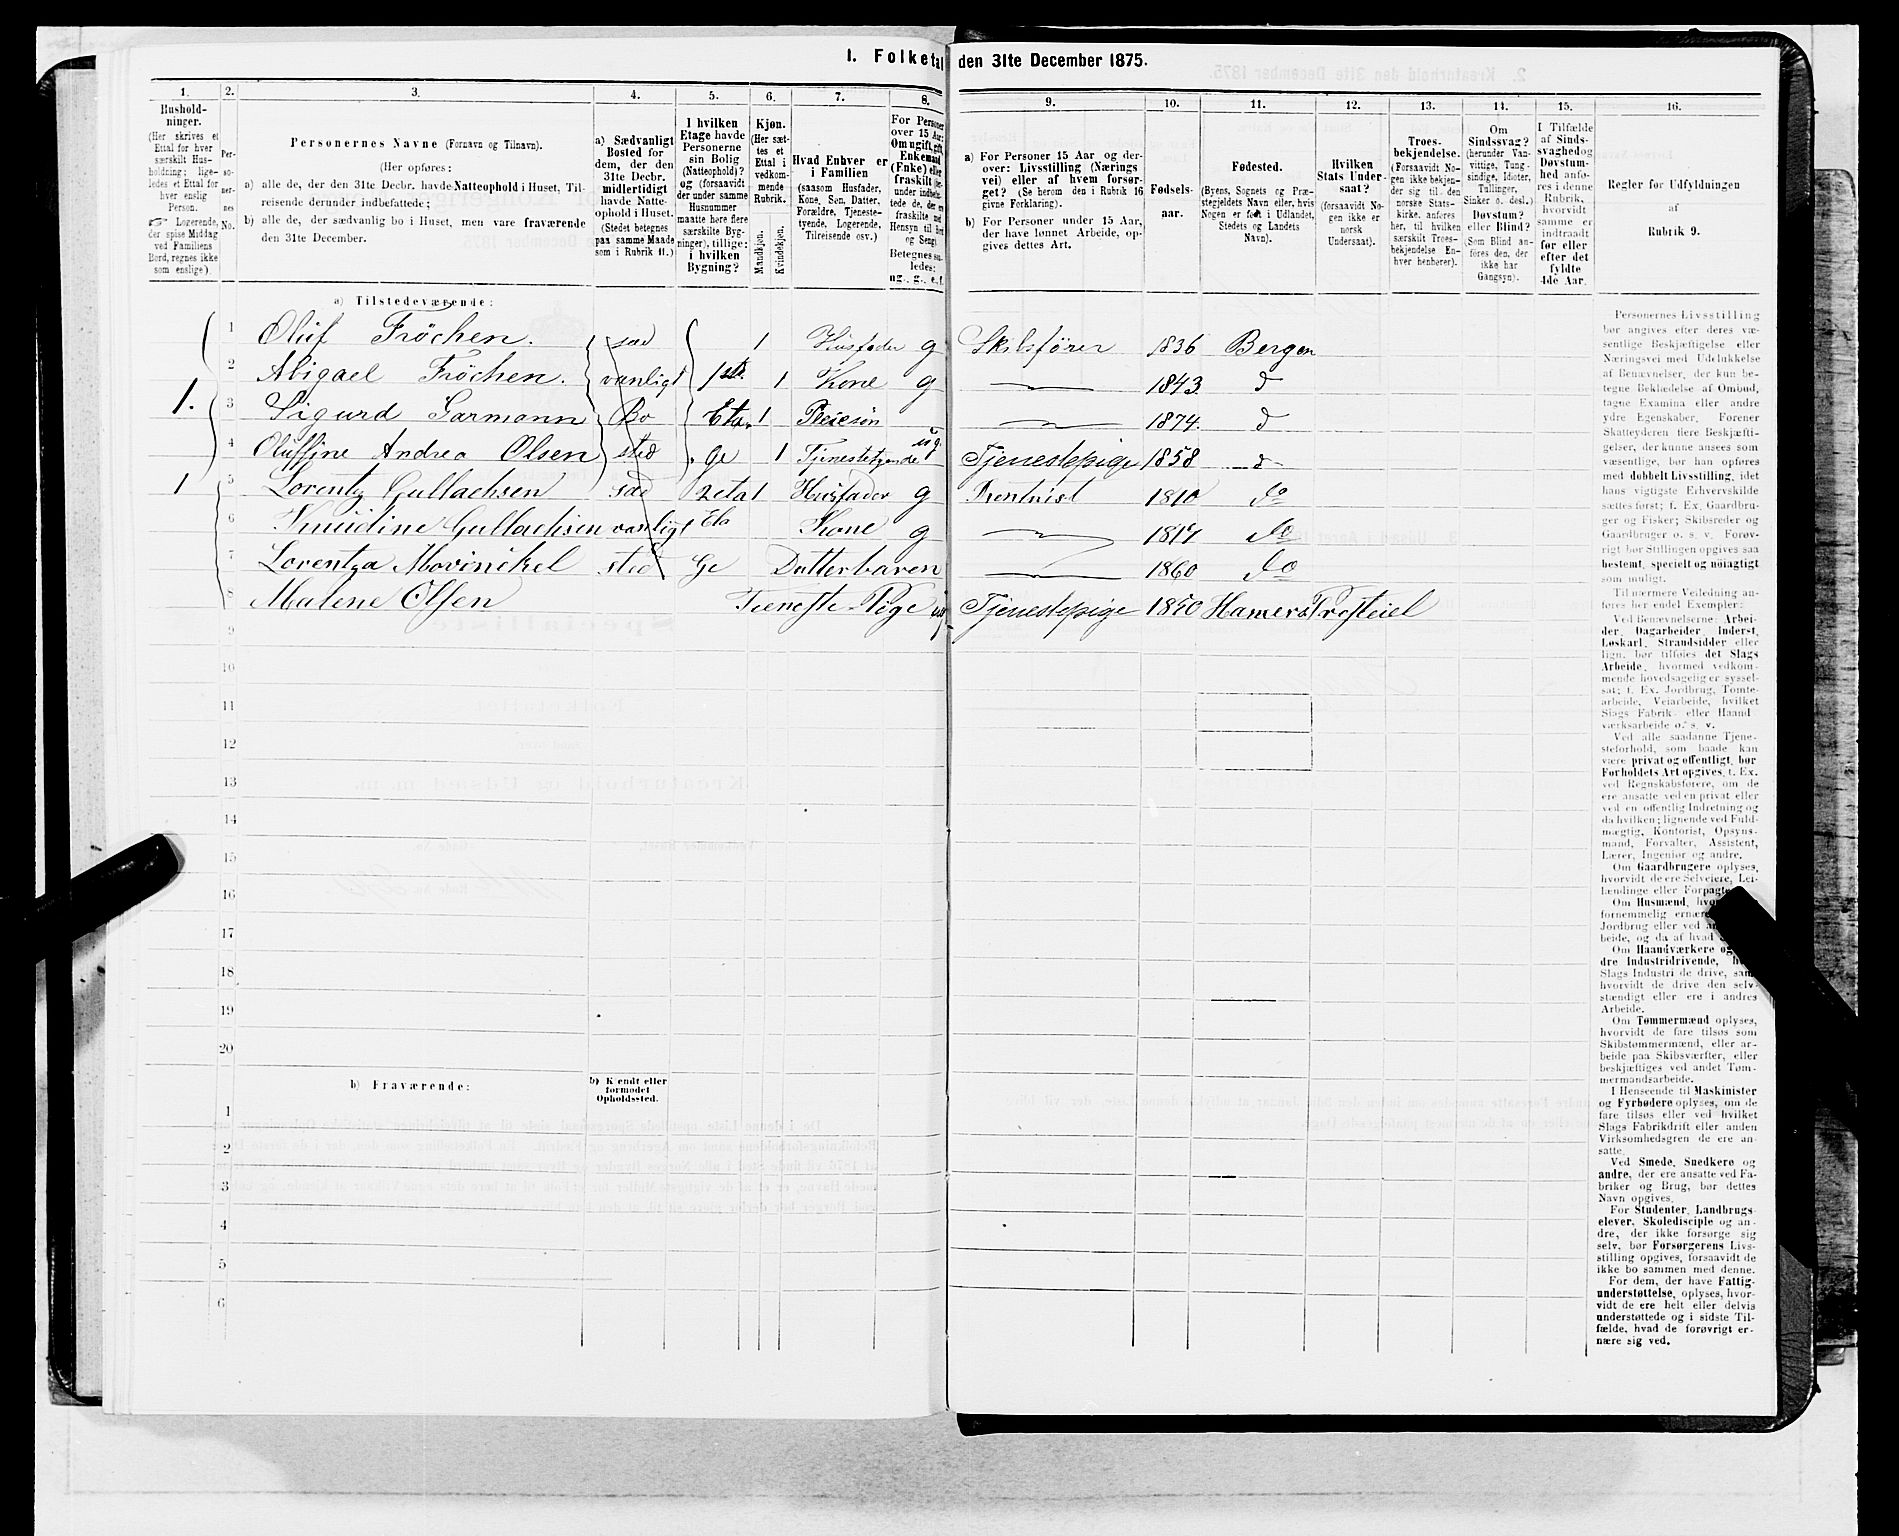 1. Folketal den 31te December 1875.
1. 2. 3. 4. 5. 6. 7. 8. 9. 10. 11. 12. 13. 14. 15. 16.
Hushold-
ninger.
(Her skrives et
Ettal for hver
særskilt Hus-
holdning; lige-
ledes et Ettal for
hver enslig
Person.
☞ Logerende,
der spise Middag
ved Familiens
Bord, regnes ikke
som enslige).
Per-
so-
ner-
nes
No.
Personernes Navne (Fornavn og Tilnavn).
(Her opføres:
a) alle de, der den 31te Decbr. havde Natteophold i Huset, Til-
reisende derunder indbefattede;
b) alle de, der sædvanlig bo i Huset, men vare fraværende
den 31te December.
a) Sædvanligt
Bosted for
dem, der den
31te Decbr.
midlertidigt
havde Natte-
ophold i Huset.
(Stedet betegnes
paa samme Maade
som i Rubrik 11.)
I hvilken
Etage havde
Personerne
sin Bolig
(Natteophold)?
og (forsaavidt
der under samme
Husnummer
maatte høre flere
særskilte Byg-
ninger), tillige:
i hvilken
Bygning?
Kjøn.
(Her sæt-
tes et
Ettal i
vedkom-
mende
Rubrik.
Mandkjøn.
Kvindekjøn.
Hvad Enhver er
i Familien
(saasom Husfader,
Kone, Søn, Datter,
Forældre, Tjeneste-
tyende, Logerende,
Tilreisende osv.)
For Personer
over 15 Aar:
Om ugift, gift,
Enkemand
(Enke) eller
fraskilt
Betegnes saa-
ledes:
ug., g., e., f.
a) For Personer 15 Aar og der-
over: Livsstilling (Nærings
vei) eller af hvem forsør-
get? (Se herom den i Rubrik 16
givne Forklaring).
b) For Personer under 15 Aar,
der have lønnet Arbeide, op-
gives dettes Art.
Fødsels-
aar.
Fødested.
(Byens, Sognets og Præ-
stegjeldets Navn eller, hvis
Nogen er født i Udlandet,
Stedets og Landets
Navn).
Hvilken
Stats Under-
saat?
(forsaavidt No-
gen ikke er
norsk
Undersaat).
Troes-
bekjendelse.
(Forsaavidt No-
gen ikke bekjen-
der sig til den
norske Stats-
kirke, anføres
her, til hvilken
særskilt Troes-
bekjendelse En-
hver henhører).
Om
Sindssvag?
(herunder Van-
vittige, Tung-
sindige, Idioter,
Tullinger,
Sinker o. desl.)
Døvstum?
eller Blind?
(Som Blind an-
føres den, der
ikke har
Gangsyn).
I Tilfælde
af Sinds-
svaghed og
Døvstum-
hed anfø-
res i denne
Rubrik,
hvorvidt
samme er
indtraadt
før eller
efter det
fyldte
4de Aar.
Regler før Udfyldningen
af
Rubrik 9.
a) Tilstedeværende:
1 Oluf Fröchen. sæd 1 Husfader g Skibsfører 1836 Bergen
2 Abigael Fröchen. vanligt 1ste 1 Kone g 1843 d
1. 3 Sigurd Garmann Bo Eta 1 Pleiesøn 1874. d
4 Oluffine Andrea Olsen sted ge 1 Tjenestetyende ug. Tjenestepige 1858 d
1 5 Lorentz Gullachsen sæd 2 eta 1 Husfader g Rentenist 1810 do
6 Knudine Gullachsen vanligt Eta Kone g 1817 do
7 Lorentza Movinckel sted Ge Datterbaren 1860 do
8 Malene Olsen Tieneste Pige ug Tjenestepige 1850 Hamers Presteiel
9
10
11
12
13
14
15
16
17
18
19
20
b) Fraværende:
b) Kendt eller
formodet
Opholdssted.
1
2
3
4
5
6
Personernes Livsstilling
bør angives efter deres væ-
sentlige Beskjæftigelse eller
Næringsvei med Udelukkelse
af Benævnelser, der kun be-
tegne Beklædelse af Ombud,
tagne Examina eller andre
ydre Egenskaber. Forener
Skatteyderen flere Beskjæfti-
gelser, der kunne ansees som
væsentlige, bør han opføres
med dobbelt Livsstilling, idet
hans vigtigste Erhvervskilde
sættes først; f. Ex. Gaardbru-
ger og Fisker; Skibsreder og
Gaardbruger o. s. v. Forøv-
rigt bør Stillingen opgives saa
bestemt, specielt og nøiagtigt
som muligt.
Til nærmere Veiledning an-
føres her endel Exempler:
Ved Benævnelserne: Arbei-
der, Dagarbeider, Inderst,
Løskarl, Strandsidder eller
lign. bør tilføies det Slags
Arbeide, hvormed vedkom-
mende hovedsagelig er syssel-
sat; f. Ex. Jordbrug, Tomte-
arbeide, Veiarbeide, hvilket
Slags Fabrik- eller Haand
værksarbeide o. s. v.
Ved alle saadanne Tjene-
steforhold, som baade kan
være privat og offentligt, bør
Forholdets Art opgives, f. Ex.
ved Regnskabsførere, om de
ere ansatte ved en privat eller
ved en offentlig Indretning og
da hvilken; lignende ved Fuld-
mægtig, Kontorist, Opsyns-
mand, Forvalter, Assistent,
Lærer, Ingeniør og andre.
Om Gaardbrugere oplyses,
hvorvidt de ere Selveiere, Lei-
lændinge eller
Om Husmænd,
fornemmelig
Jordbrug eller ved
beide, og da af hvad
Om Haandværkere og
dre Industridrivende,
Slags Industri de drive, samt
hvorvidt de drive den selv-
stændigt eller ere i andres
Arbeide.
Om Tømmermænd oplyses,
hvorvidt de fare tilsøs som
Skibstømmermænd, eller ar-
beide paa Skibsværfter, eller
beskjæftiges ved andet Tøm-
mermandsarbeide.
I Henseende til Maskinister
og Fyrbødere oplyses, om de
fare tilsøs eller ved hvilket
Slags Fabrikdrift eller anden
Virksomhedsgren de ere an-
satte.
Ved Smede, Snedkere og
andre, der ere ansatte ved Fa-
briker og Brug, bør dettes
Navn opgives.
For Studenter, Landbrugs-
elever, Skoledisciple og an-
dre, der ikke forsørge sig
selv, bør Forsørgerens Livs-
stilling opgives, forsaavidt de
ikke bo sammen med denne.
For dem, der have Fattig-
understøttelse, oplyses, hvor-
vidt de ere helt eller delvis
understøttede og i sidste Til-
fælde, hvad de forøvrigt er-
nære sig ved.